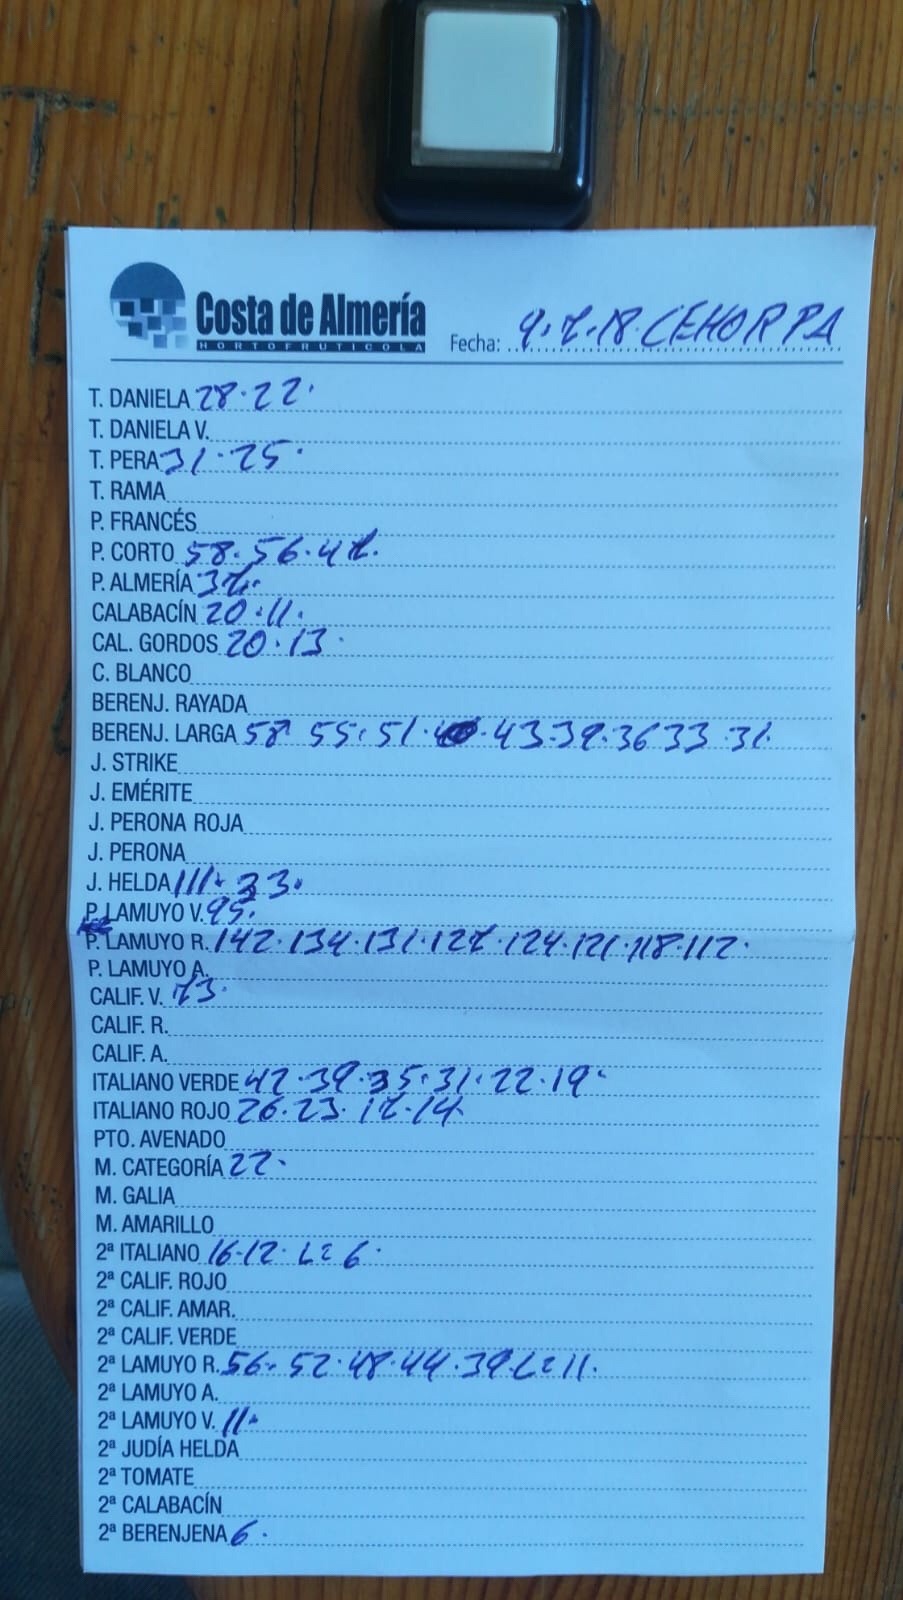 Costa de Almería
HORTOFRUTICOLA
Fecha: 9.7.18. CEHORPA
T. DANIELA 28.22.
T. DANIELA V.
T. PERA 31.25.
T. RAMA
P. FRANCÉS
P. CORTO 58.56.47.
P. ALMERÍA 37.
CALABACÍN 20.11.
CAL. GORDOS 20.13.
C. BLANCO
BERENJ. RAYADA
BERENJ. LARGA 58 55.51. 43.39.36 33.31.
J. STRIKE
J. EMÉRITE
J. PERONA ROJA
J. PERONA
J. HELDA 111.33.
P. LAMUYO V. 95.
P. LAMUYO R. 142.134.131.127.124.121.118.112.
P. LAMUYO A.
CALIF. V. 73.
CALIF. R.
CALIF. A.
ITALIANO VERDE 42.39.35.31.22.19.
ITALIANO ROJO 26.23.17.14.
PTO. AVENADO
M. CATEGORÍA 22.
M. GALIA
M. AMARILLO
2ª ITALIANO 16.12. L= 6.
2ª CALIF. ROJO
2ª CALIF. AMAR.
2ª CALIF. VERDE
2ª LAMUYO R. 56.52.48.44.39 L=11.
2ª LAMUYO A.
2ª LAMUYO V. 11.
2ª JUDÍA HELDA
2ª TOMATE
2ª CALABACÍN
2ª BERENJENA 6.